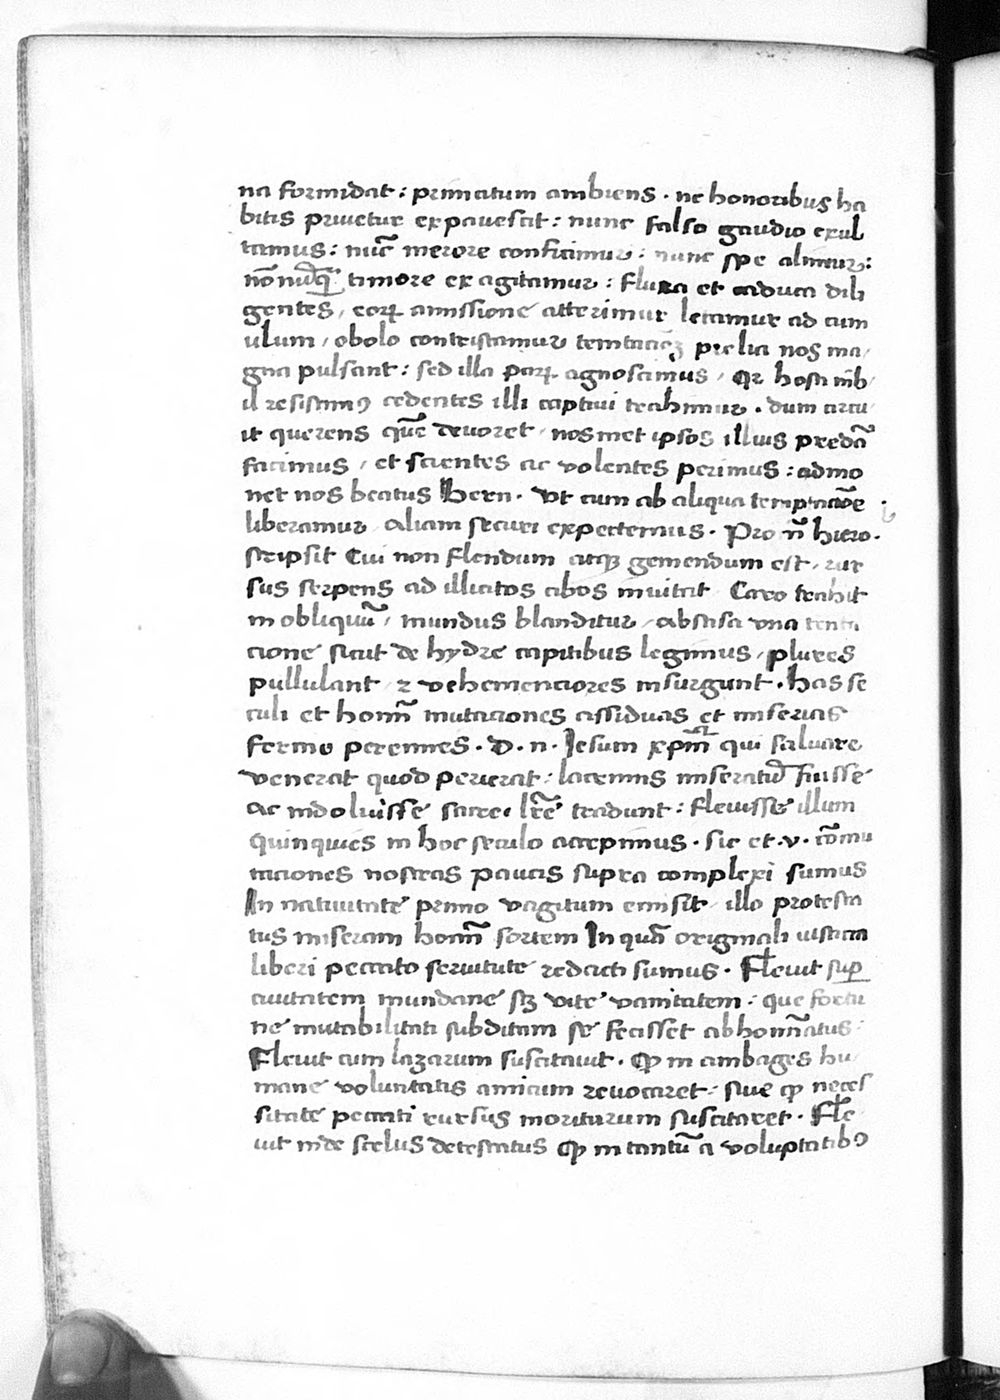 na formidat : primatum ambiens . ne honoribus ha
bitis priuetur expauescit : nunc falso gaudio exul
tamus : nūc merore conficimur : nunc spe alimur :
nōnūq̄ timore exagitamur : fluxa et caduca dili
gentes / eoꝝ amissione atterimur letamur ad cum
ulum / obolo contristamur temtacōꝫ prelia nos ma/
gna pulsant : sed illa paꝝ agnoscimus / qꝛ hosti nih/
il resistimꝰ cedentes illi captiui trahimur . dum circu/
it querens quē deuoret / nosmet ipsos illius predā
facimus / et scientes ac volentes perimus : admo
net nos beatus Bern . vt cum ab aliqua temptacōe
liberamur / aliam securi expectemus . Pro n̄ hiero .
scripsit Cui non flendum atqꝫ gemendum est / rur
sus serpens ad illicitos cibos inuitat Caro trahit
in obliquū / mundus blanditur / abscisa vna tenta
cione sicut de hydre capitibus legimus / plures
pullulant / ⁊ vehemenciores insurgunt . has se
culi et homīn mutaciones assiduas et miserias
ferme perennes . d . n . Iesum xp̄m qui saluare
venerat quod perierat : lacrimis miseratū fuisse
ac indoluisse sacre lr̄e tradunt : fleuisse illum
quinquies in hoc seculo accepimus . sic et . v . cōmu
taciones nostras paucis supra complexi sumus
In natiuitate primo vagitum emisit / illo protesta
tus miseram homīn sortem In quā originali iusticia
liberi peccato seruitute redacti sumus . Fleuit sup̱
ciuitatem mundane sꝫ vite vanitatem : que fortu
ne mutabilitati subditam se fecisset ab homīnatus :
Fleuit cum lazarum suscitauit . Qꝫ in ambages hu/
mane voluntatis amicum reuocaret / siue qꝫ neces
sitate peccati rursus moriturum suscitaret . Fle/
uit inde scelus detestatus Qꝫ in tantū a voluptatibꝰ